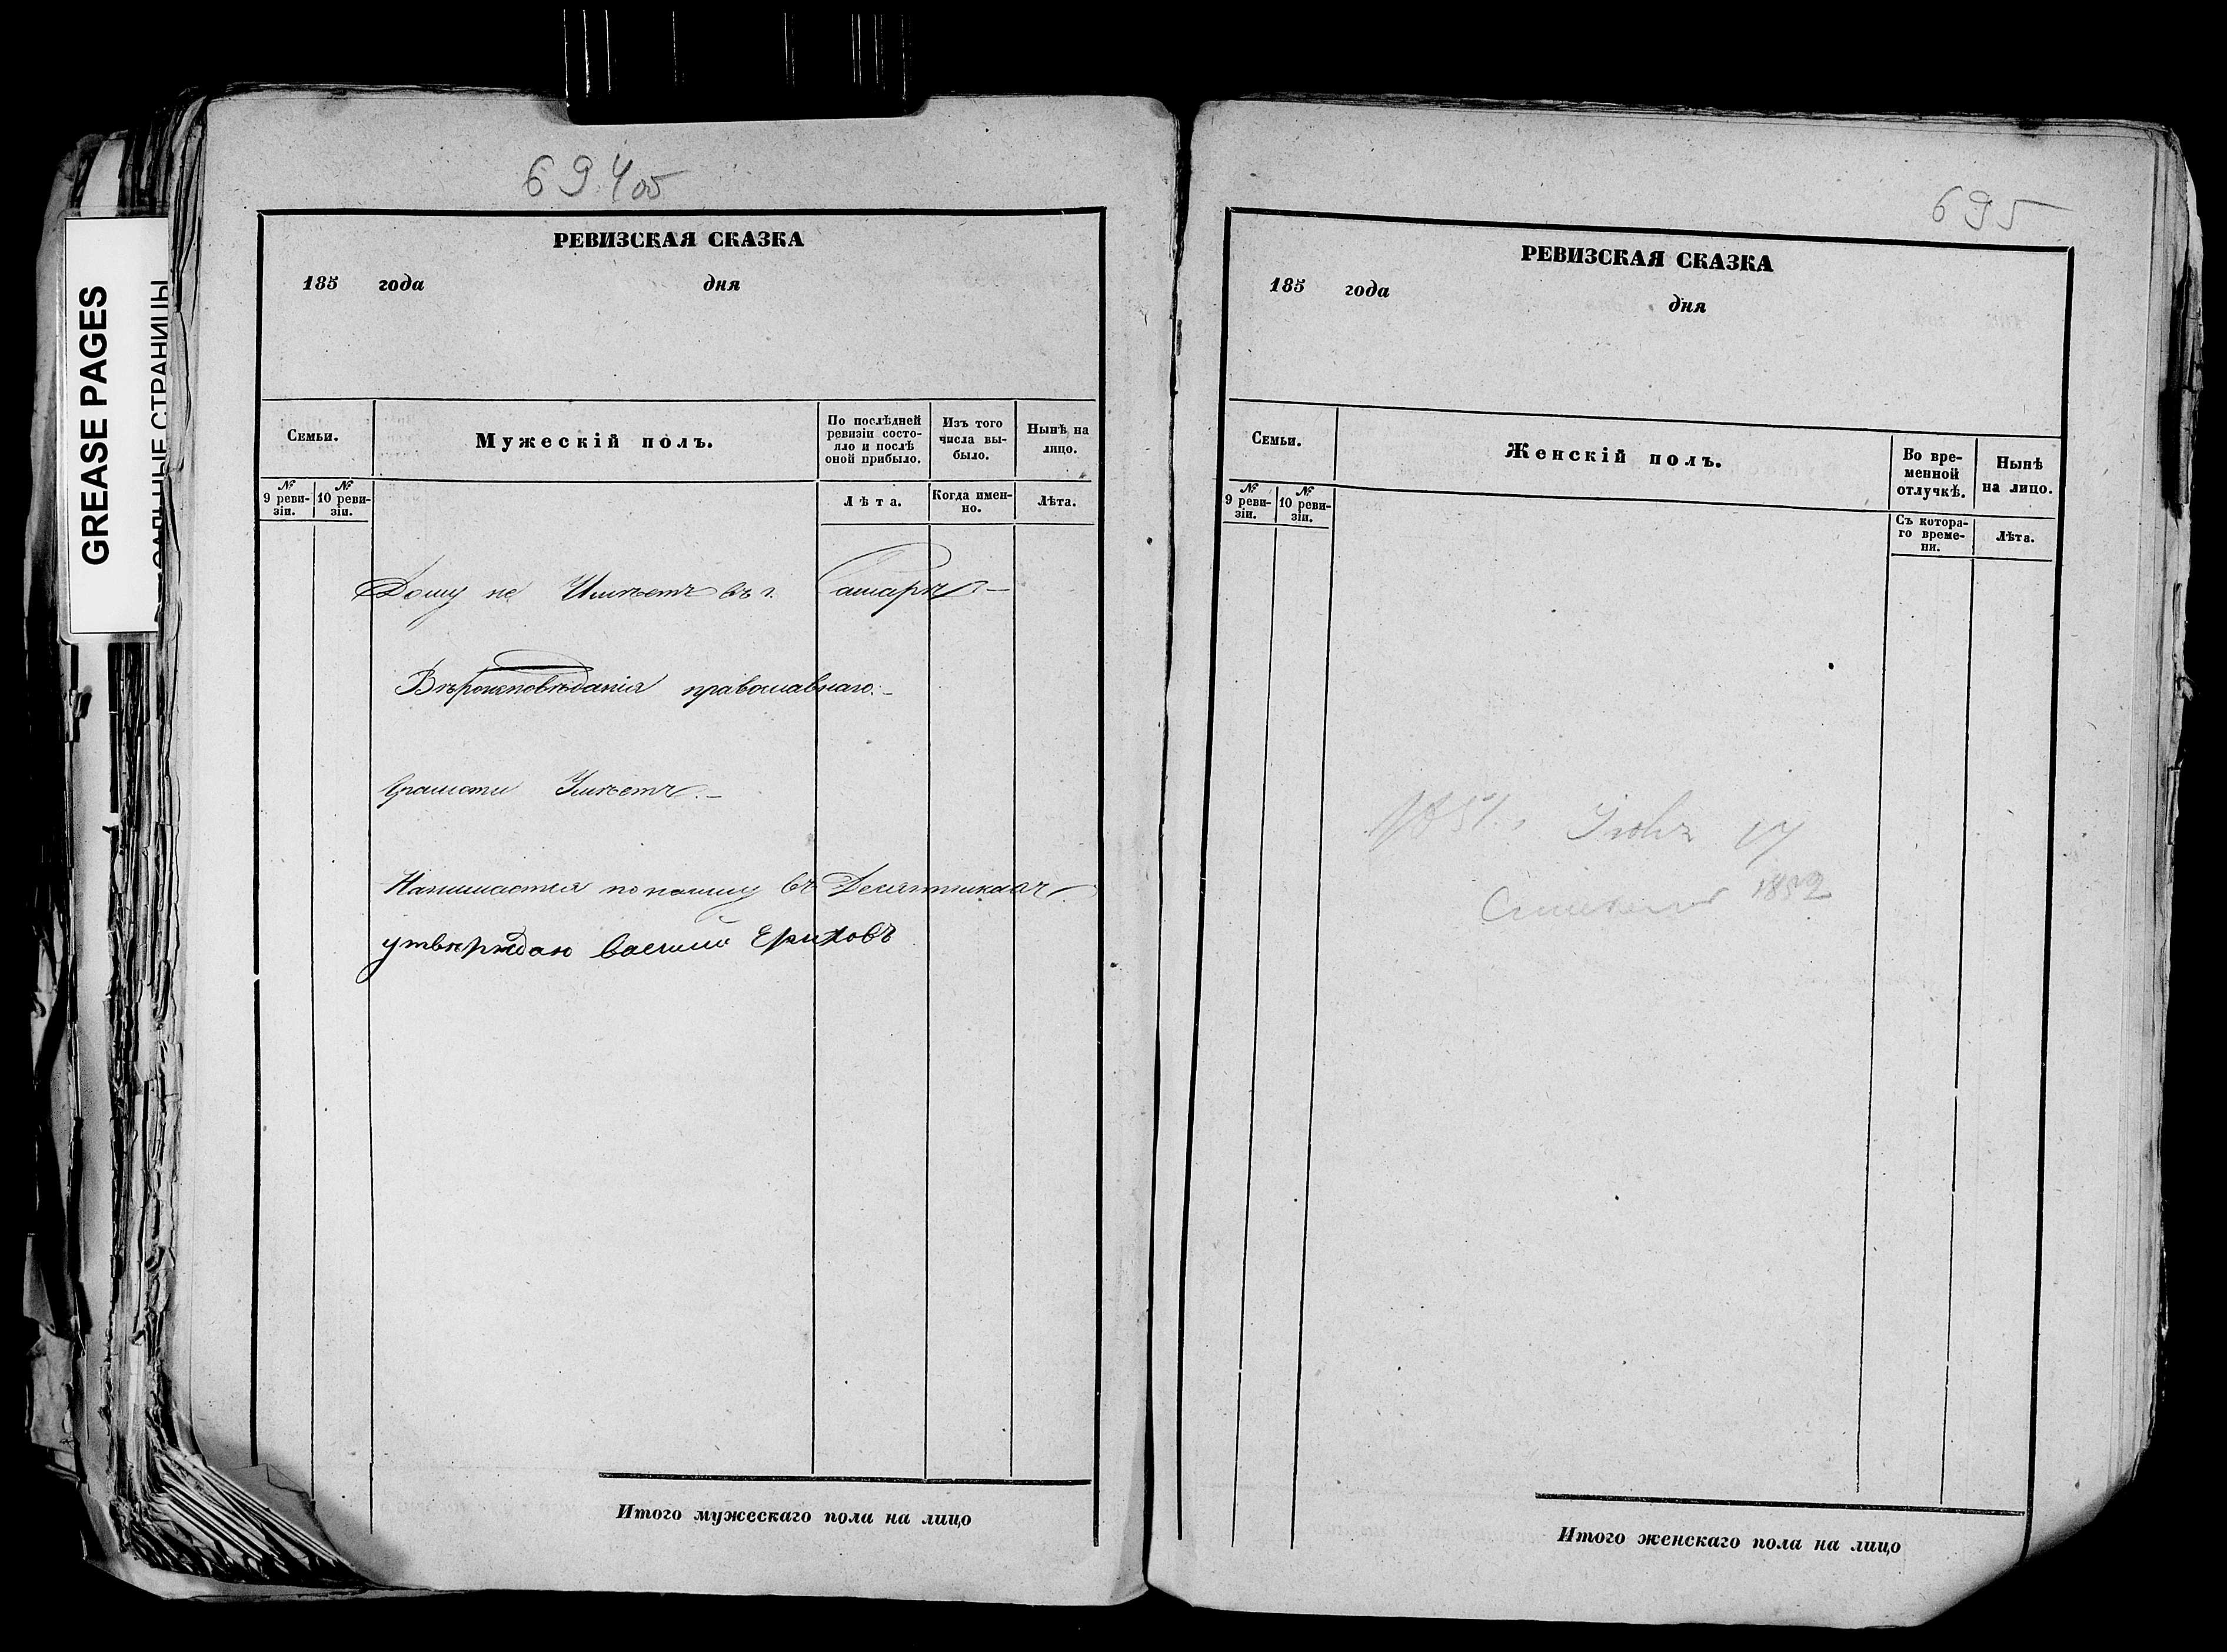 GREASE PAGES
694об
РЕВИЗСКАЯ СКАЗКА
185 года дня
Семьи.
Мужескій полъ.
По послѣдней ревизіи состо-
яло и послѣ оной прибыло.
Изъ того числа вы-
было.
Нынѣ на лицо.
№ 9 реви-
зіи.
№ 10 реви-
зіи.
Лѣта.
Когда имен-
но.
Лѣта.
Дому не Имѣетъ въ г. Самарѣ
Вѣроисповѣданія православнаго.
Грамоти Умѣетъ.
Нанимается по найму въ Десятникахъ
утвѣрждаю василий Ериховъ
Итого мужескаго пола на лицо
695
РЕВИЗСКАЯ СКАЗКА
185 года
дня
Семьи.
Женскій полъ.
Во вре-
менной
отлучкѣ.
Нынѣ
на лицо.
№ 9 реви-
зіи.
№ 10 реви-
зіи.
Съ котора-
го време-
ни.
Лѣта.
1851
1852
Итого женскаго пола на лицо